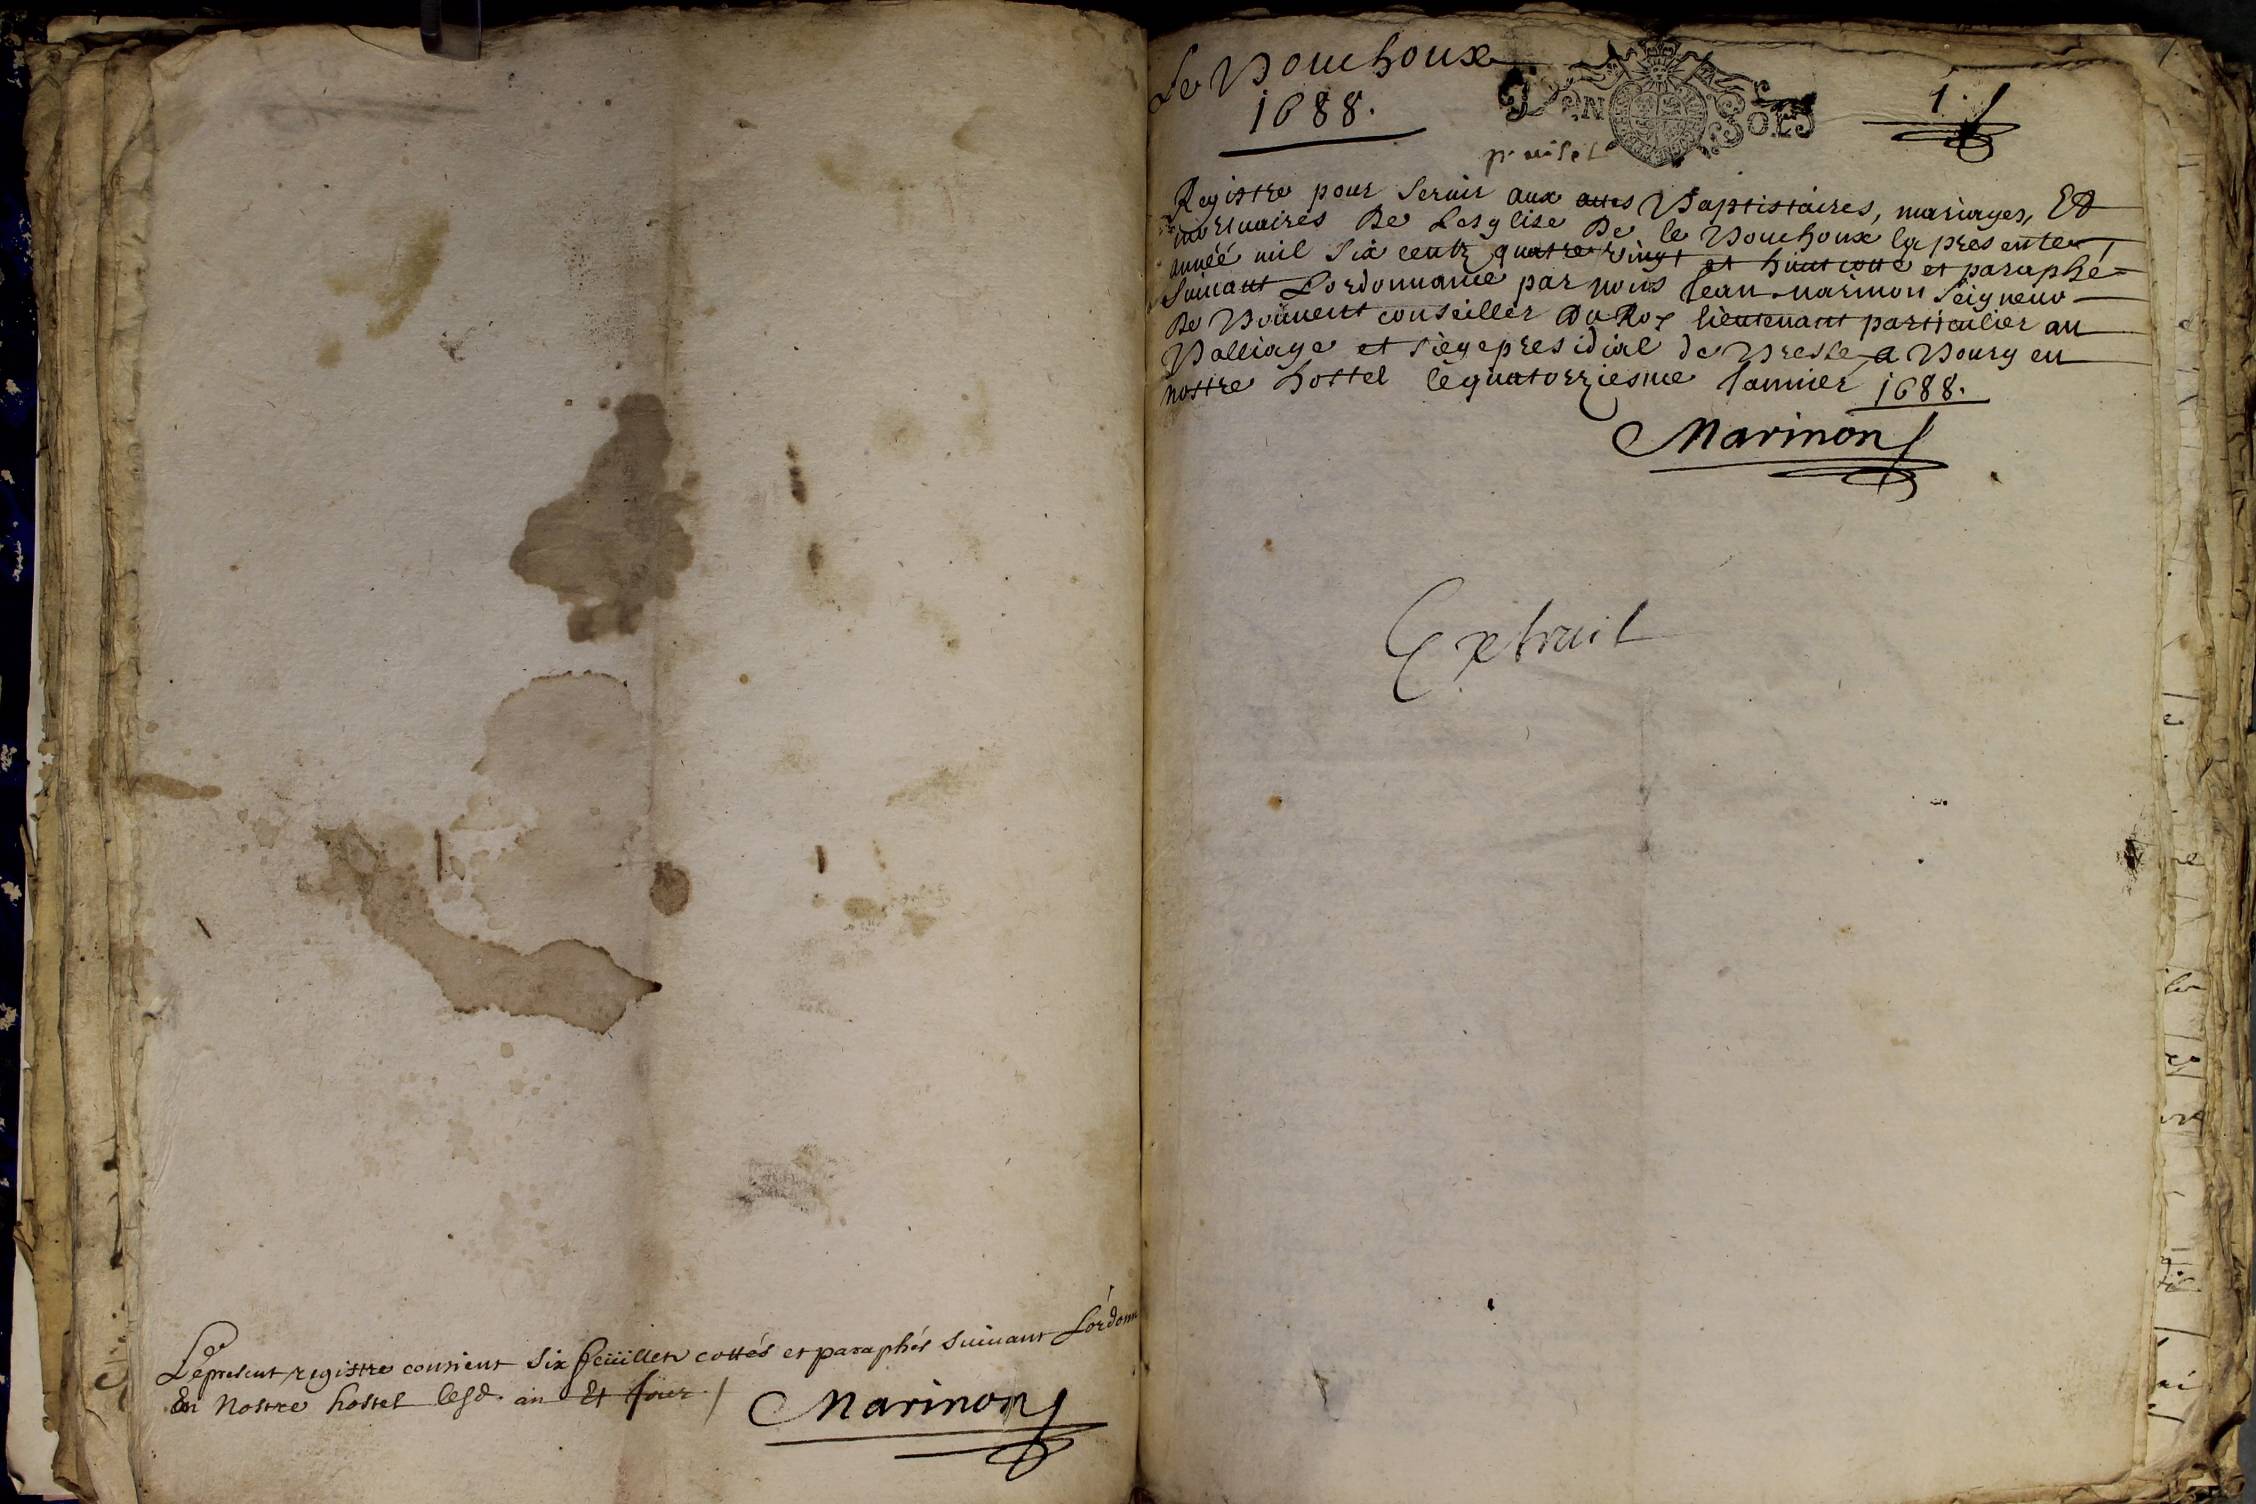 Le present registre contient six feüillets cottés et paraphés suivant Lordonn
En Nostre hostel lesd. an Et jour /
Marinon
Le Bouchoux
1688.
1.
DEN SOLS
Registre pour servir aux actes Baptistaires, mariages, Et
mortuaires De Lesglise De le Bouchoux la presente
année mil six centz quatre vingt et huict cotté et paraphé
suivant Lordonnance par nous Jean marinon seigneur
De conseiller Du Roy lieutenant particulier au
Balliage et siege presidial de Bresse a Bourg en
nostre hostel le quatorziesme Janvier 1688.
Marinon
Extrait